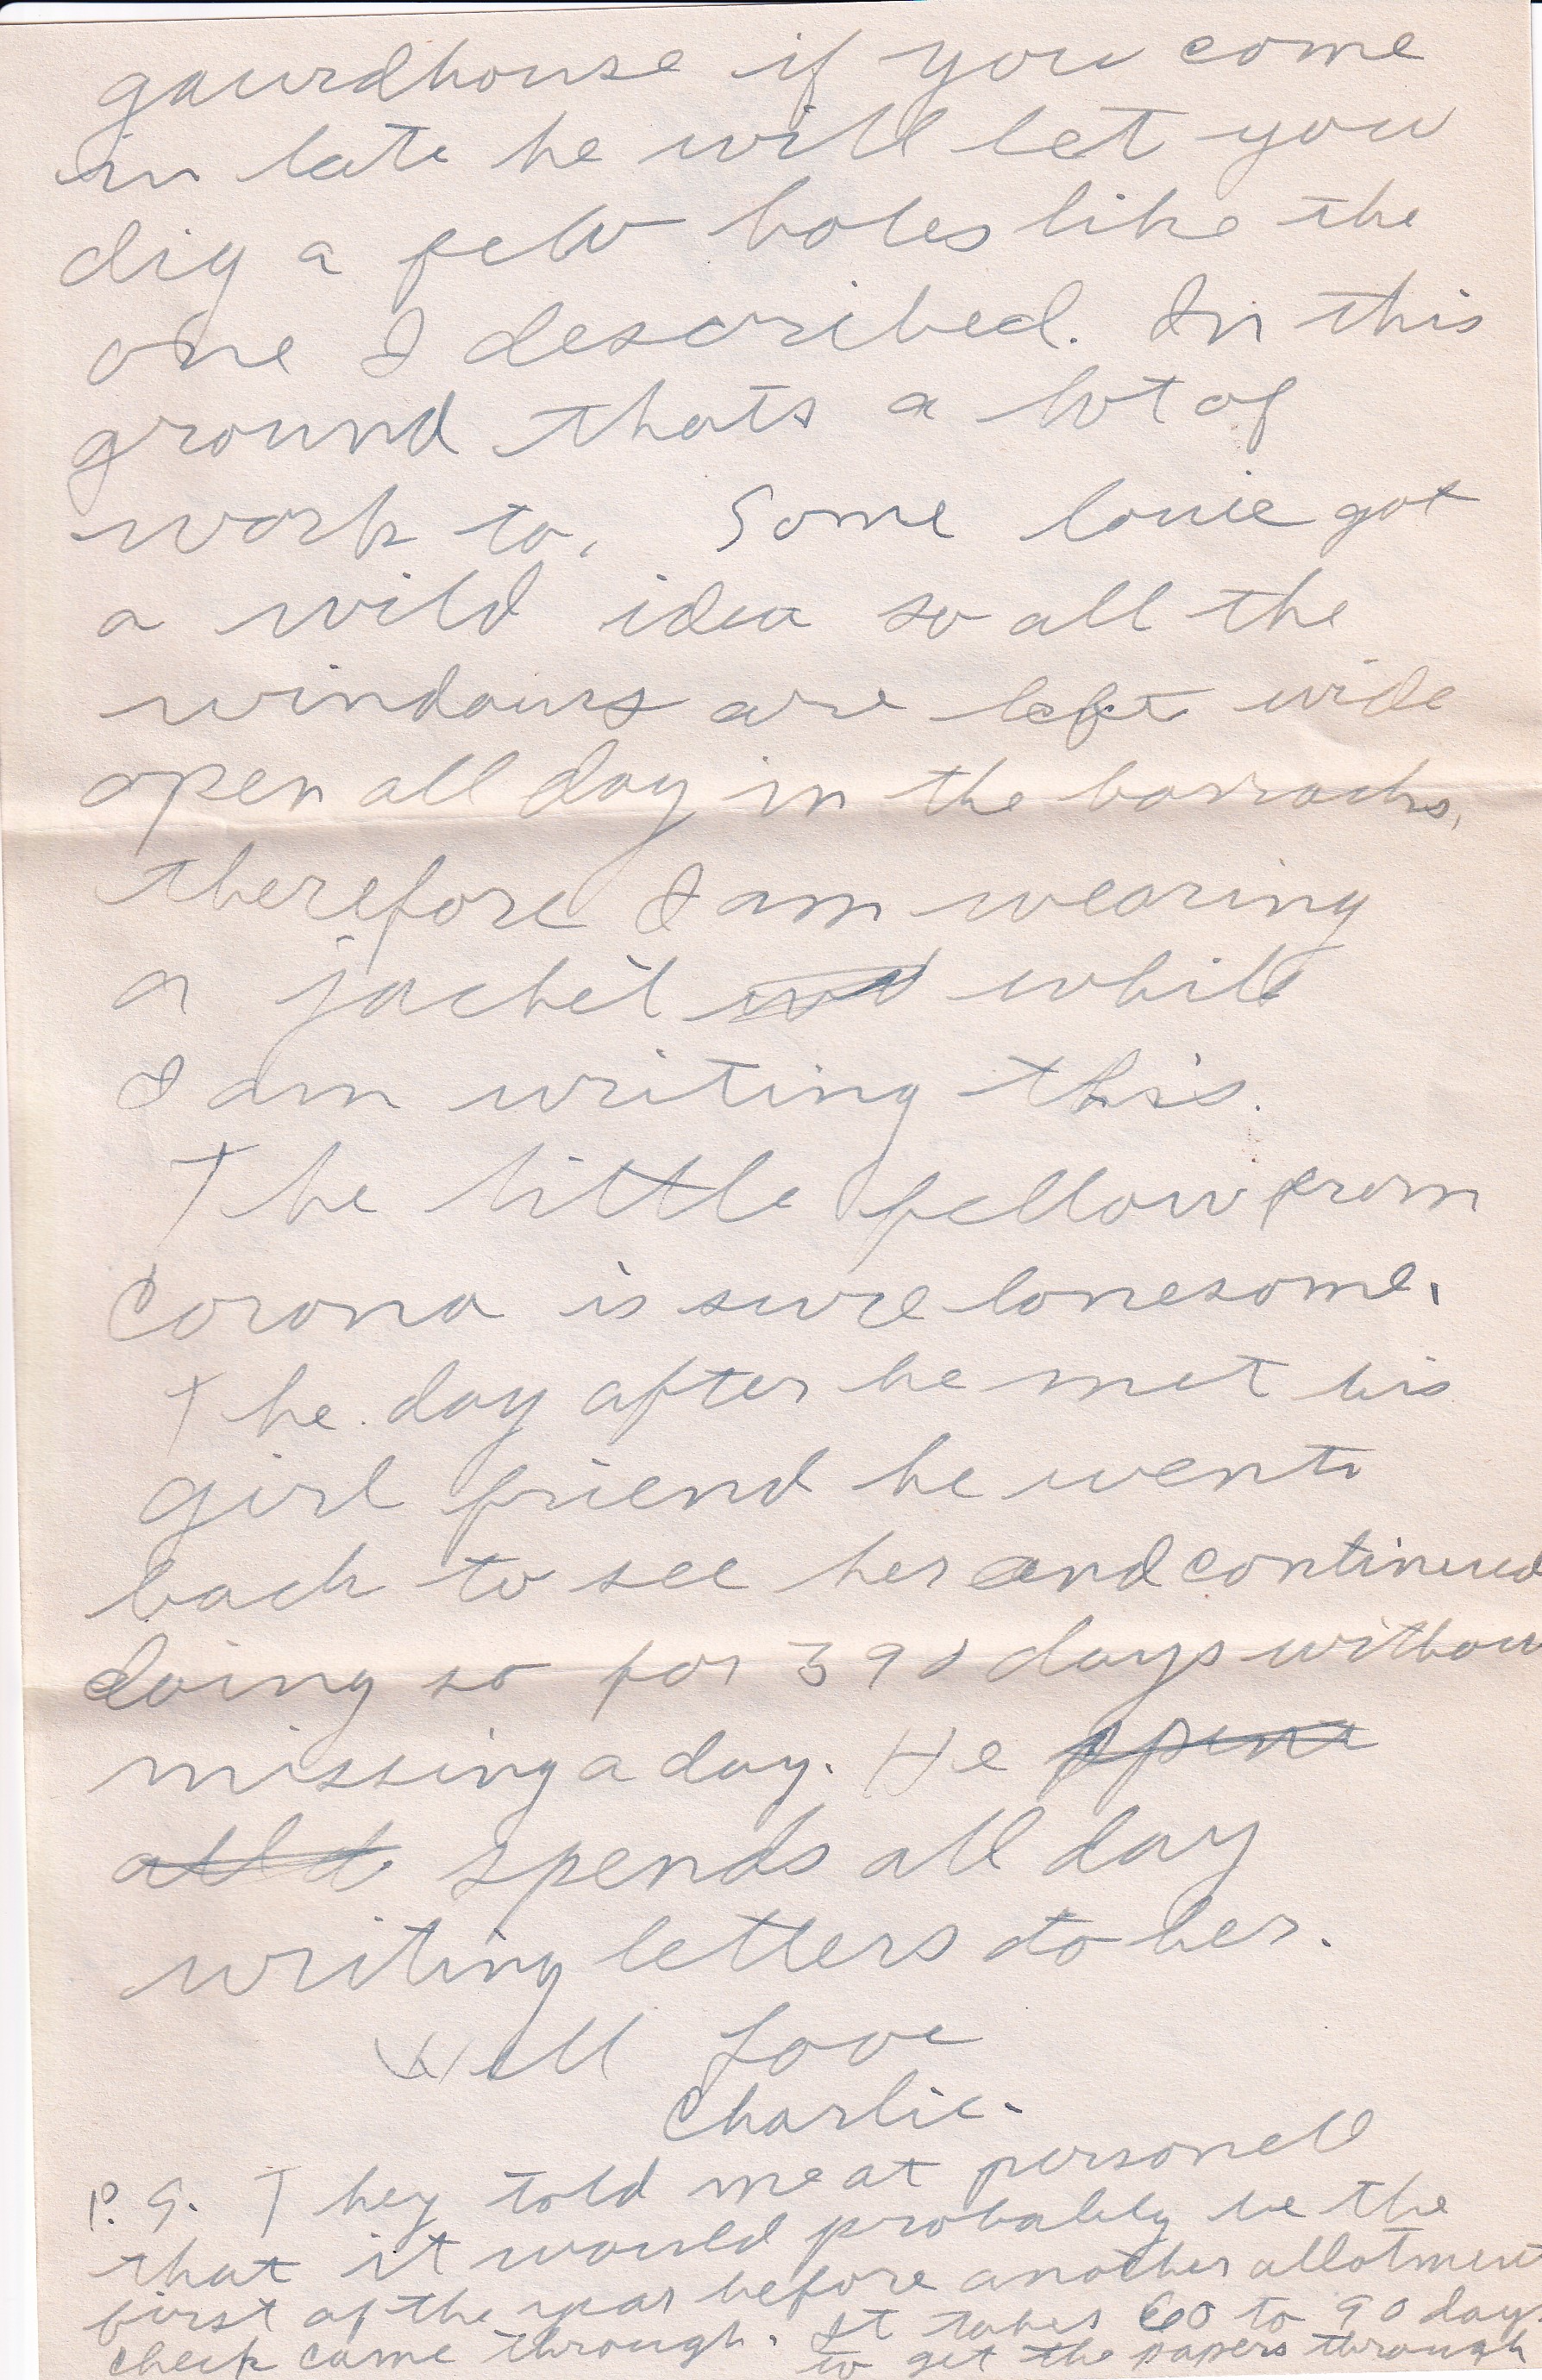 gaurdhouse if you come
in late he will let you
dig a few holes like the
one I described. In this
ground thats a lot of
work to. Some louie got
a wild idea so all the
windows are left wide
open all day in the barracks,
therefore I am wearing
a jacket while
I am writing this.
The little fellow from
Corona is sure lonesome.
The day after he met his
girl friend he went
back to see her and continued
doing so for 390 days withou
missing a day. He spent
all d spends all day
writing letters to her.
Will Love
Charlie.
P.S. They told me at personell
that it would probably be the
first of the year before another allotment
check came through. It takes 60 to 90 days
to get the papers through